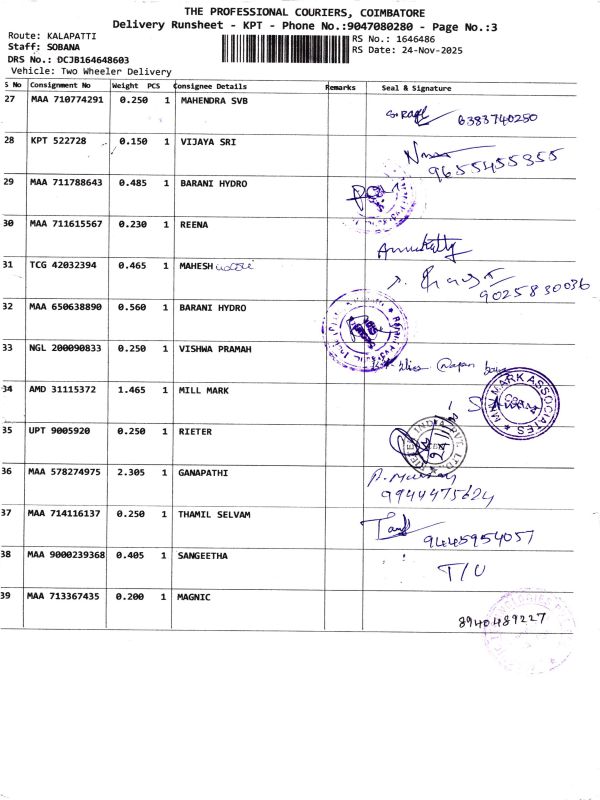 THE PROFESSIONAL COURIERS, COIMBATORE
Delivery Runsheet - KPT - Phone No.:9047080280 - Page No.:3
Route: KALAPATTI
Staff: SOBANA
DRS No.: DCJB164648603
Vehicle: Two Wheeler Delivery
RS No.: 1646486
RS Date: 24-Nov-2025
S No Consignment No Weight PCS Consignee Details Remarks Seal & Signature
27 MAA 710774291 0.250 1 MAHENDRA SVB 6383740250
28 KPT 522728 0.150 1 VIJAYA SRI 9655455355
29 MAA 711788643 0.485 1 BARANI HYDRO
30 MAA 711615567 0.230 1 REENA
31 TCG 42032394 0.465 1 MAHESH 9025830036
32 MAA 650638890 0.560 1 BARANI HYDRO
33 NGL 200090833 0.250 1 VISHWA PRAMAH
34 AMD 31115372 1.465 1 MILL MARK MILL MARK ASSOCIATES
35 UPT 9005920 0.250 1 RIETER INDIA PVT. LTD.
36 MAA 578274975 2.305 1 GANAPATHI 9944475624
37 MAA 714116137 0.250 1 THAMIL SELVAM 9445954057
38 MAA 9000239368 0.405 1 SANGEETHA T/U
39 MAA 713367435 0.200 1 MAGNIC 8940489227